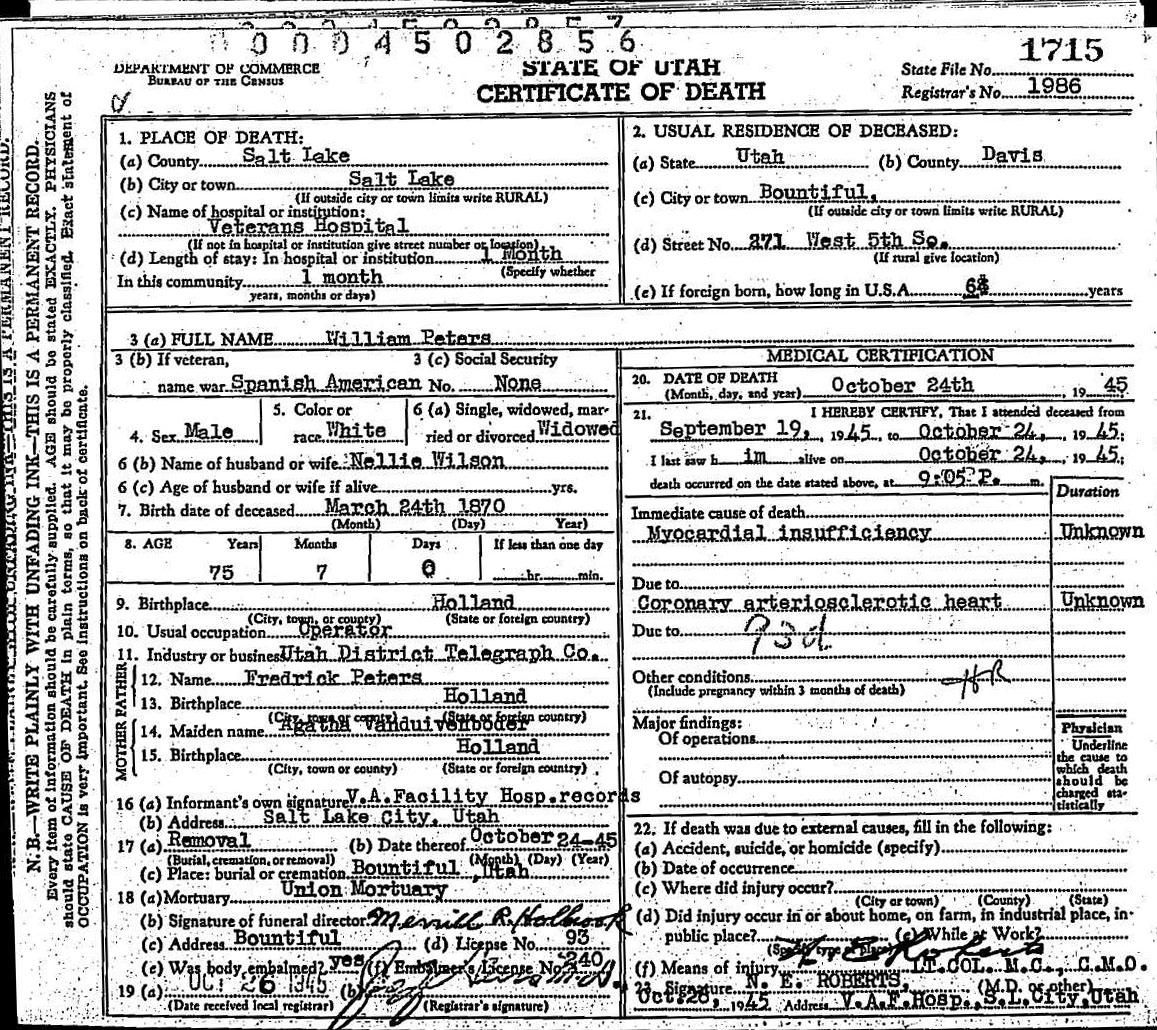 0004502856
1715
DEPARTMENT OF COMMERCE
BUREAU OF THE CENSUS
STATE OF UTAH
CERTIFICATE OF DEATH
State File No.
Registrar's No. 1986
N. B.—WRITE PLAINLY WITH UNFADING INK—THIS IS A PERMANENT RECORD.
Every item of information should be carefully supplied. AGE should be stated EXACTLY. PHYSICIANS
should state CAUSE OF DEATH in plain terms, so that it may be properly classified. Exact statement of
OCCUPATION is very important. See instructions on back of certificate.
1. PLACE OF DEATH:
(a) County Salt Lake
(b) City or town Salt Lake
(If outside city or town limits write RURAL)
(c) Name of hospital or institution:
Veterans Hospital
(If not in hospital or institution give street number or location)
(d) Length of stay: In hospital or institution 1 Month
(Specify whether
In this community 1 month
years, months or days)
2. USUAL RESIDENCE OF DECEASED:
(a) State Utah (b) County Davis
(c) City or town Bountiful,
(If outside city or town limits write RURAL)
(d) Street No. 271 West 5th So.
(If rural give location)
(e) If foreign born, how long in U.S.A. years
3 (a) FULL NAME William Peters
3 (b) If veteran, 3 (c) Social Security
name war Spanish American No. None
4. Sex Male
5. Color or
race White
6 (a) Single, widowed, mar-
ried or divorced Widowed
6 (b) Name of husband or wife Nellie Wilson
6 (c) Age of husband or wife if alive yrs.
7. Birth date of deceased March 24th 1870
(Month) (Day) Year)
8. AGE Years Months Days If less than one day
75 7 0 hr. min.
9. Birthplace Holland
(City, town, or county) (State or foreign country)
10. Usual occupation Operator
11. Industry or business Utah District Telegraph Co.
MOTHER FATHER
12. Name Fredrick Peters
13. Birthplace Holland
(City, town or county) (State or foreign country)
14. Maiden name Agatha Vanduivenboder
15. Birthplace Holland
(City, town or county) (State or foreign country)
16 (a) Informant's own signature V.A.Facility Hosp.records
(b) Address Salt Lake City, Utah
17 (a) Removal (b) Date thereof October 24-45
(Burial, cremation, or removal) (Month) (Day) (Year)
(c) Place: burial or cremation Bountiful, Utah
18 (a) Mortuary Union Mortuary
(b) Signature of funeral director Merrill R. Holbrook
(c) Address Bountiful (d) License No. 93
(e) Was body embalmed? yes (f) Embalmer's License No. 240
19 (a) OCT 26 1945 (b)
(Date received local registrar) (Registrar's signature)
MEDICAL CERTIFICATION
20. DATE OF DEATH October 24th 19 45
(Month, day, and year)
21. I HEREBY CERTIFY, That I attended deceased from
September 19, 1945 to October 24, 1945;
I last saw h im alive on October 24, 1945;
death occurred on the date stated above, at 9:05 P. m.
Duration
Immediate cause of death
Myocardial insufficiency Unknown
Due to
Coronary arteriosclerotic heart Unknown
Due to 93d
Other conditions
(Include pregnancy within 3 months of death)
Major findings:
Of operations
Of autopsy
Physician
Underline
the cause to
which death
should be
charged sta-
tistically
22. If death was due to external causes, fill in the following:
(a) Accident, suicide, or homicide (specify)
(b) Date of occurrence
(c) Where did injury occur?
(City or town) (County) (State)
(d) Did injury occur in or about home, on farm, in industrial place, in-
public place? (e) While at Work?
(Specify type of place)
(f) Means of injury LT.COL. M.C., C.M.O.
23. Signature N. E. ROBERTS, (M.D. or other)
Oct.26, 1945 Address V.A.F.Hosp.,S.L.City,Utah